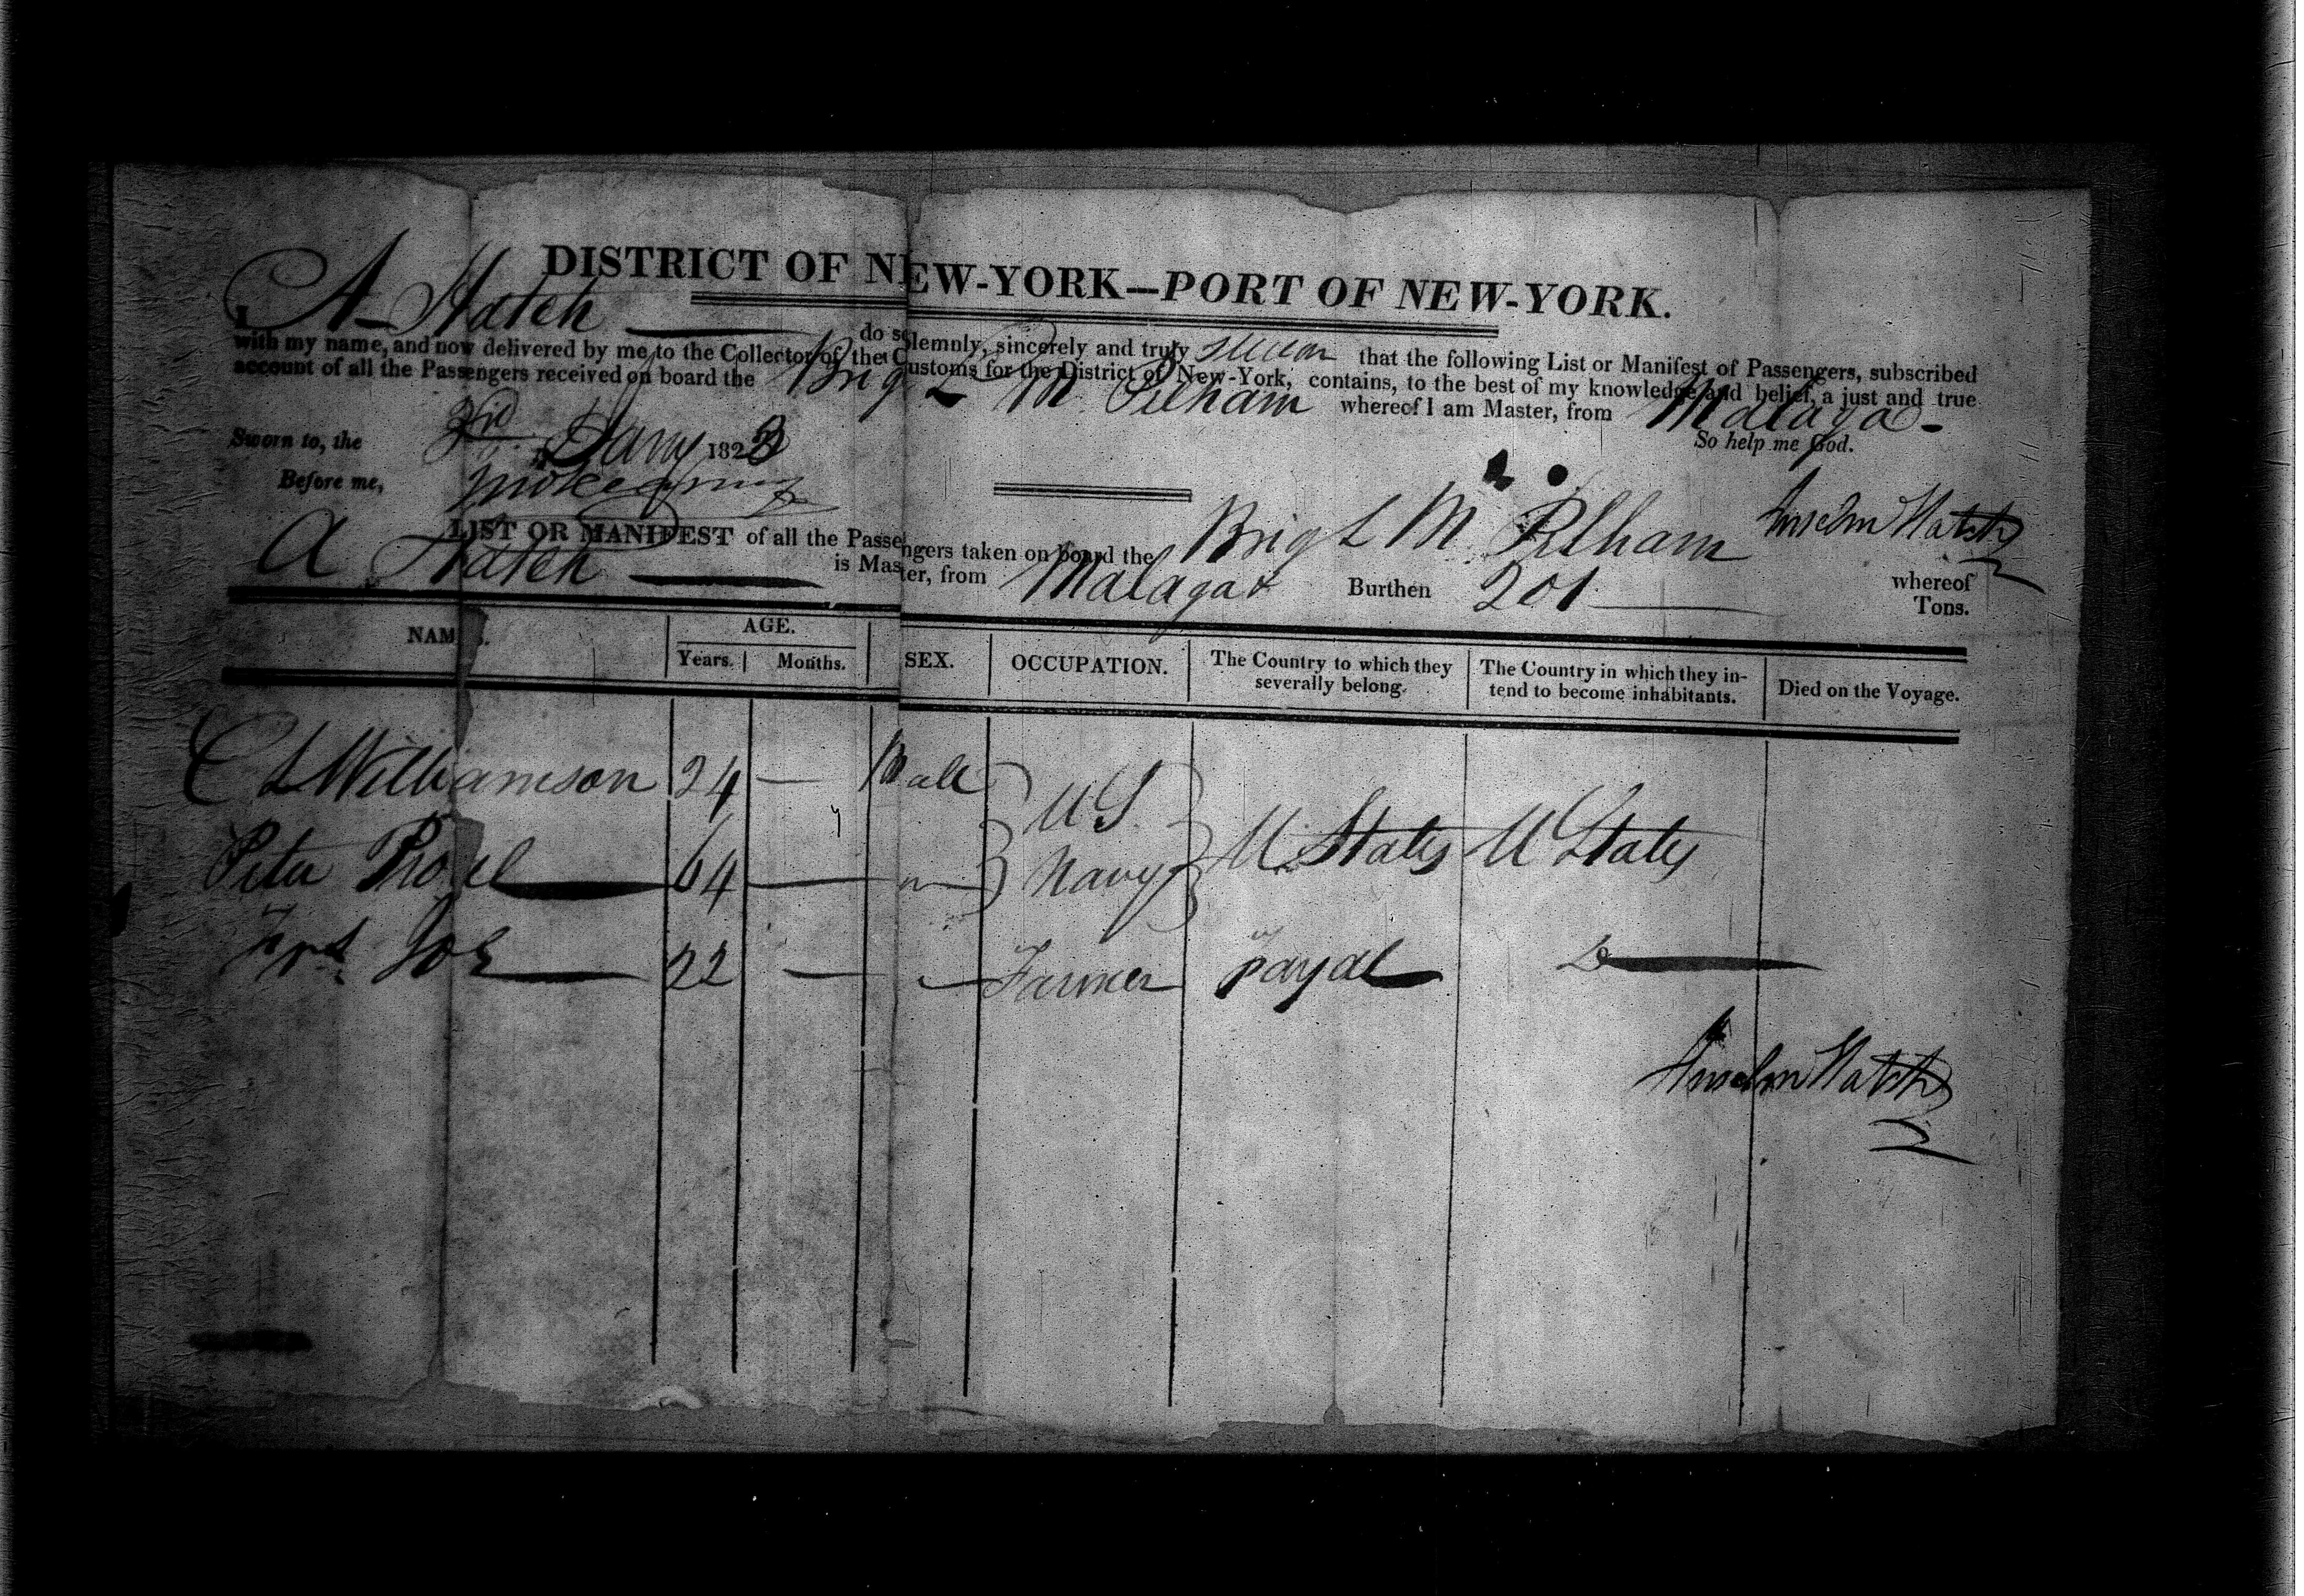 DISTRICT OF NEW-YORK—PORT OF NEW-YORK.
I A Hatch do solemnly, sincerely and truly swear that the following List or Manifest of Passengers, subscribed
with my name, and now delivered by me to the Collector of the Customs for the District of New-York, contains, to the best of my knowledge and belief, a just and true
account of all the Passengers received on board the Brig L M Pelham whereof I am Master, from Malaga
So help me God.
Sworn to, the 3rd Jany 1823
Before me,
Anselm Hatch
LIST OR MANIFEST of all the Passengers taken on board the Brig L M Pelham whereof
A Hatch is Master, from Malaga Burthen 201 Tons.
NAMES. AGE. Years. Months. SEX. OCCUPATION. The Country to which they severally belong. The Country in which they intend to become inhabitants. Died on the Voyage.
C L Williamson 24 — Male U S
Peter 64 — m Navy U States U States
Joe 22 — Farmer Fayal Do
Anselm Hatch